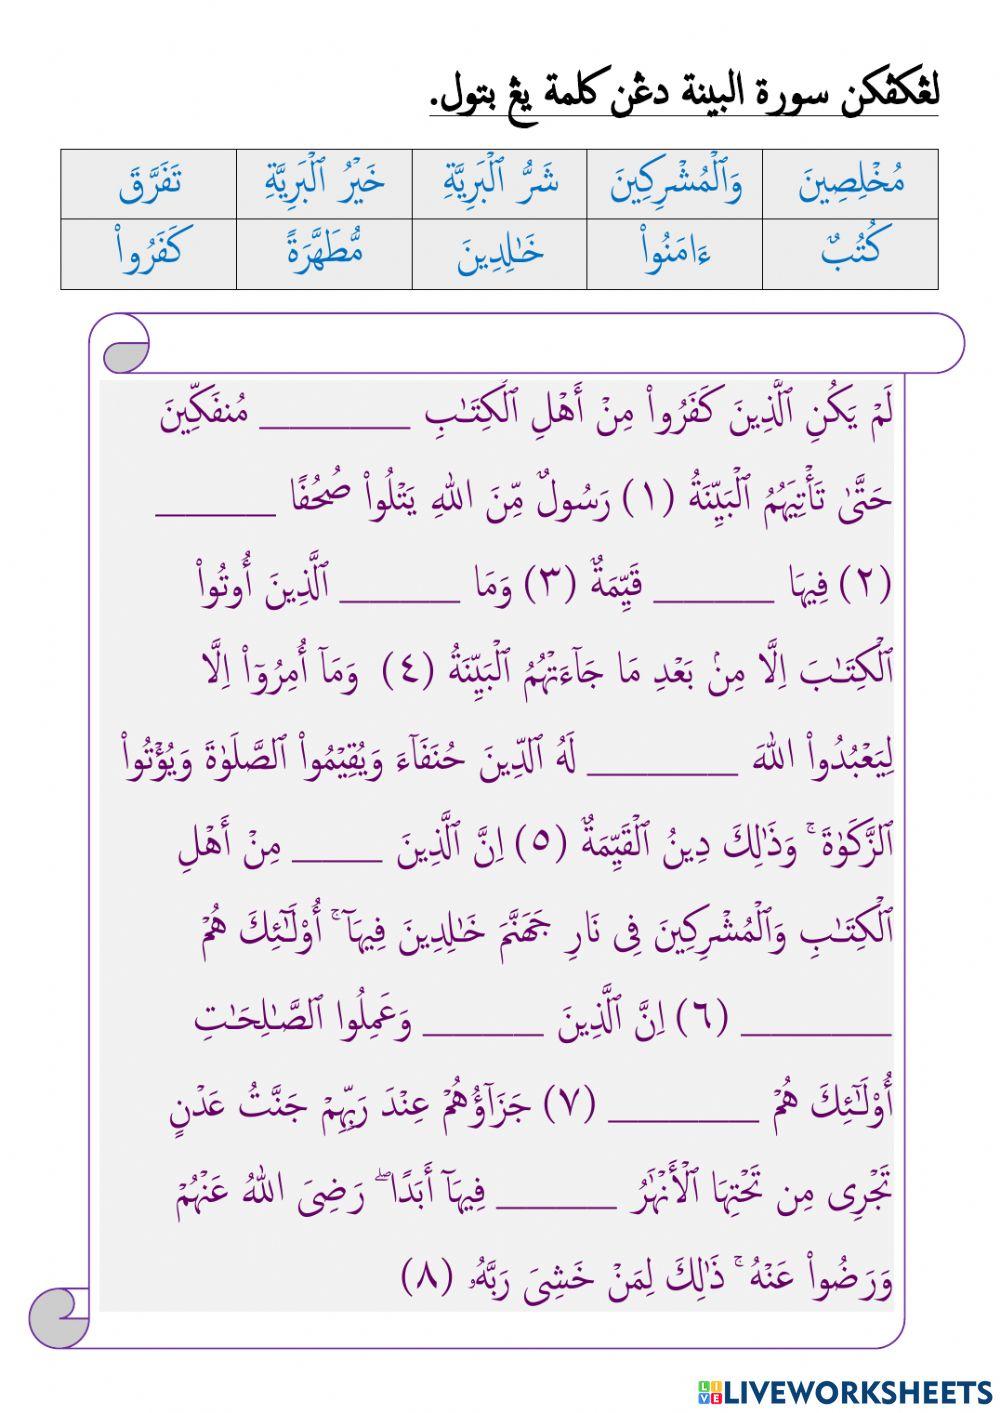 لڠكڤكن سورة البينة دڠن كلمة يڠ بتول.
مُخْلِصِينَ وَٱلْمُشْرِكِينَ شَرُّ ٱلْبَرِيَّةِ خَيْرُ ٱلْبَرِيَّةِ تَفَرَّقَ
كُتُبٌ ءَامَنُوا۟ خَـٰلِدِينَ مُّطَهَّرَةً كَفَرُوا۟
لَمْ يَكُنِ ٱلَّذِينَ كَفَرُوا۟ مِنْ أَهْلِ ٱلْكِتَـٰبِ __________ مُنفَكِّينَ
حَتَّىٰ تَأْتِيَهُمُ ٱلْبَيِّنَةُ (١) رَسُولٌ مِّنَ اللهِ يَتْلُوا۟ صُحُفًا ________
(٢) فِيهَا ________ قَيِّمَةٌ (٣) وَمَا ________ ٱلَّذِينَ أُوتُوا۟
ٱلْكِتَـٰبَ اِلَّا مِنۢ بَعْدِ مَا جَآءَتْهُمُ ٱلْبَيِّنَةُ (٤) وَمَآ أُمِرُوٓا۟ اِلَّا
لِيَعْبُدُوا۟ اللهَ __________ لَهُ ٱلدِّينَ حُنَفَآءَ وَيُقِيْمُوا۟ ٱلصَّلَوٰةَ وَيُؤْتُوا۟
ٱلزَّكَوٰةَ ۚ وَذَٰلِكَ دِينُ ٱلْقَيِّمَةٌ (٥) اِنَّ ٱلَّذِينَ ______ مِنْ أَهْلِ
ٱلْكِتَـٰبِ وَٱلْمُشْرِكِينَ فِى نَارِ جَهَنَّمَ خَـٰلِدِينَ فِيهَآ ۚ أُوْلَـٰٓئِكَ هُمْ
__________ (٦) اِنَّ ٱلَّذِينَ ________ وَعَمِلُوا ٱلصَّـٰلِحَـٰتِ
أُوْلَـٰٓئِكَ هُمْ __________ (٧) جَزَآؤُهُمْ عِنْدَ رَبِّهِمْ جَنَّتُ عَدْنٍ
تَجْرِى مِن تَحْتِهَا ٱلْأَنْهَـٰرُ ________ فِيهَآ أَبَدًا ۖ رَضِىَ اللهُ عَنْهُمْ
وَرَضُوا۟ عَنْهُ ۚ ذَٰلِكَ لِمَنْ خَشِىَ رَبَّهُۥ (٨)
LIVE LIVEWORKSHEETS